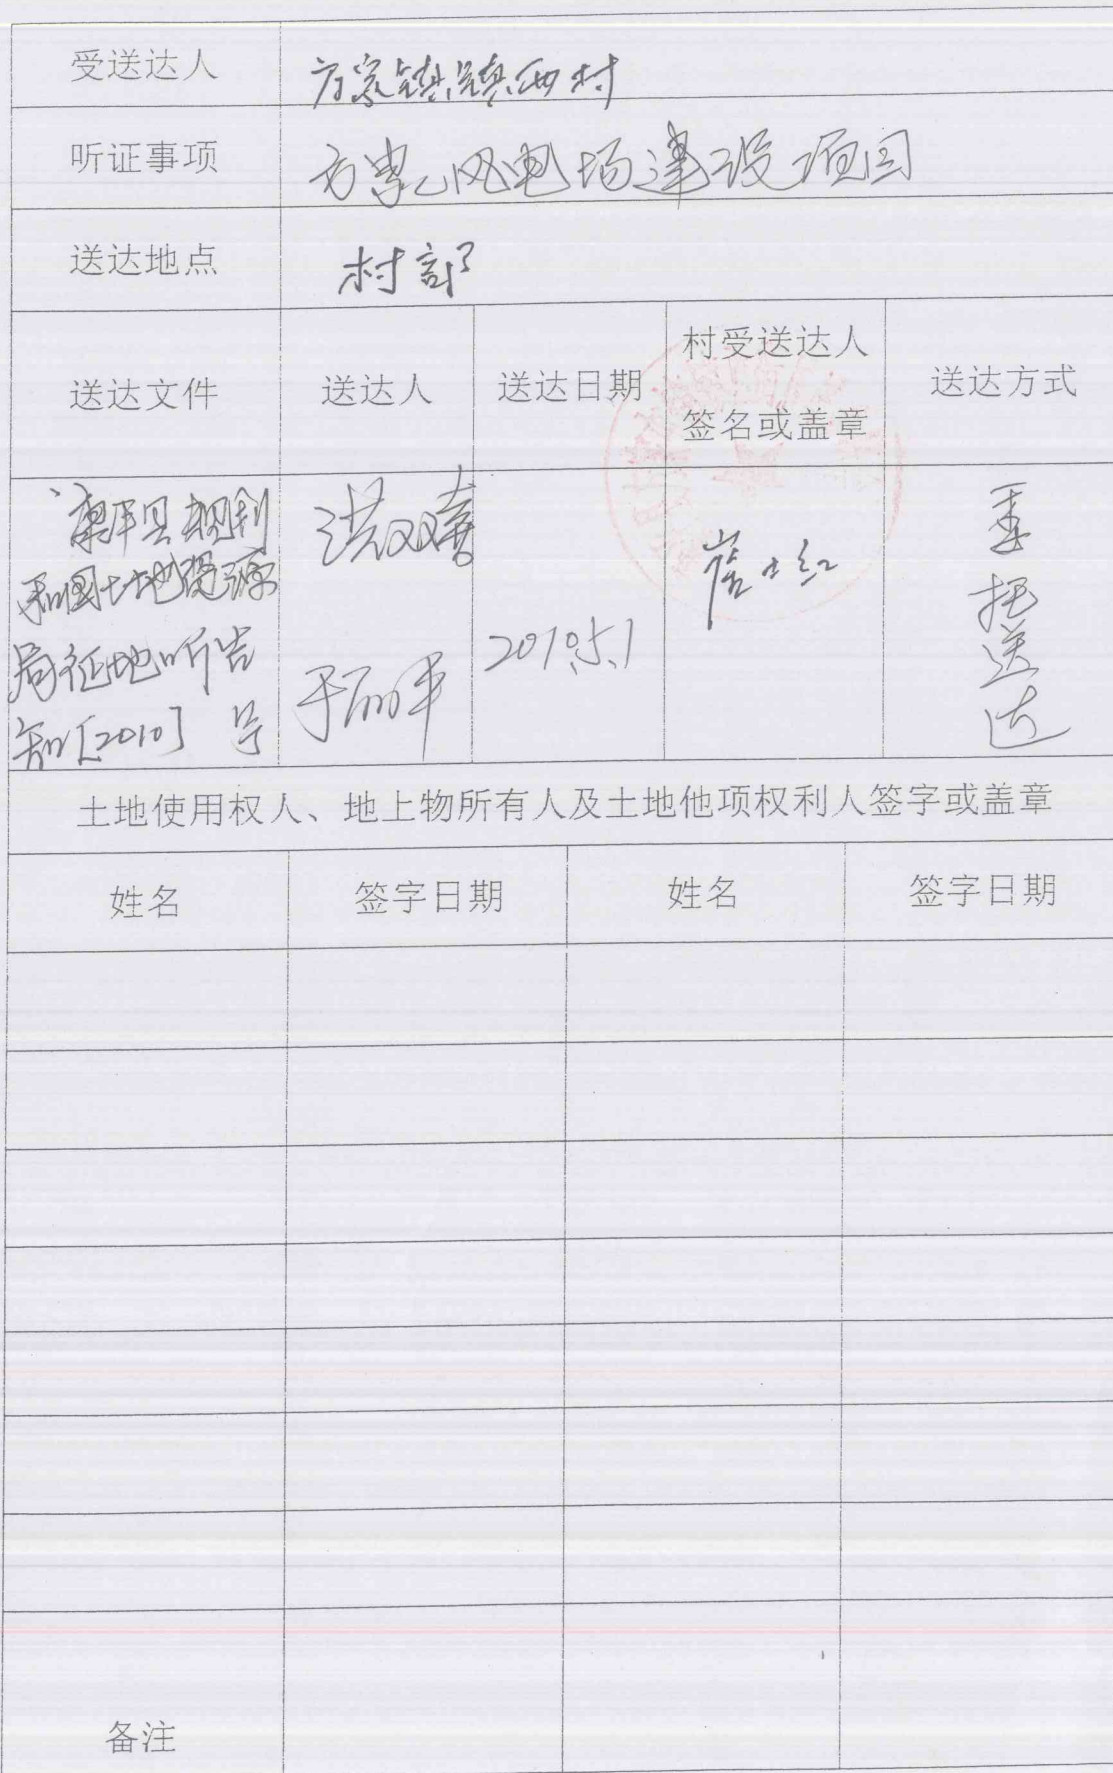 受送达人 方家镇镇西村
听证事项 方家风电场建设项目
送达地点 村部
送达文件 送达人 送达日期 村受送达人 签名或盖章 送达方式
康平县规划
和国土地资源
局征地听告
知[2010] 号
洪双喜
于丽平
2010.5.1
委托送达
土地使用权人、地上物所有人及土地他项权利人签字或盖章
姓名 签字日期 姓名 签字日期
备注